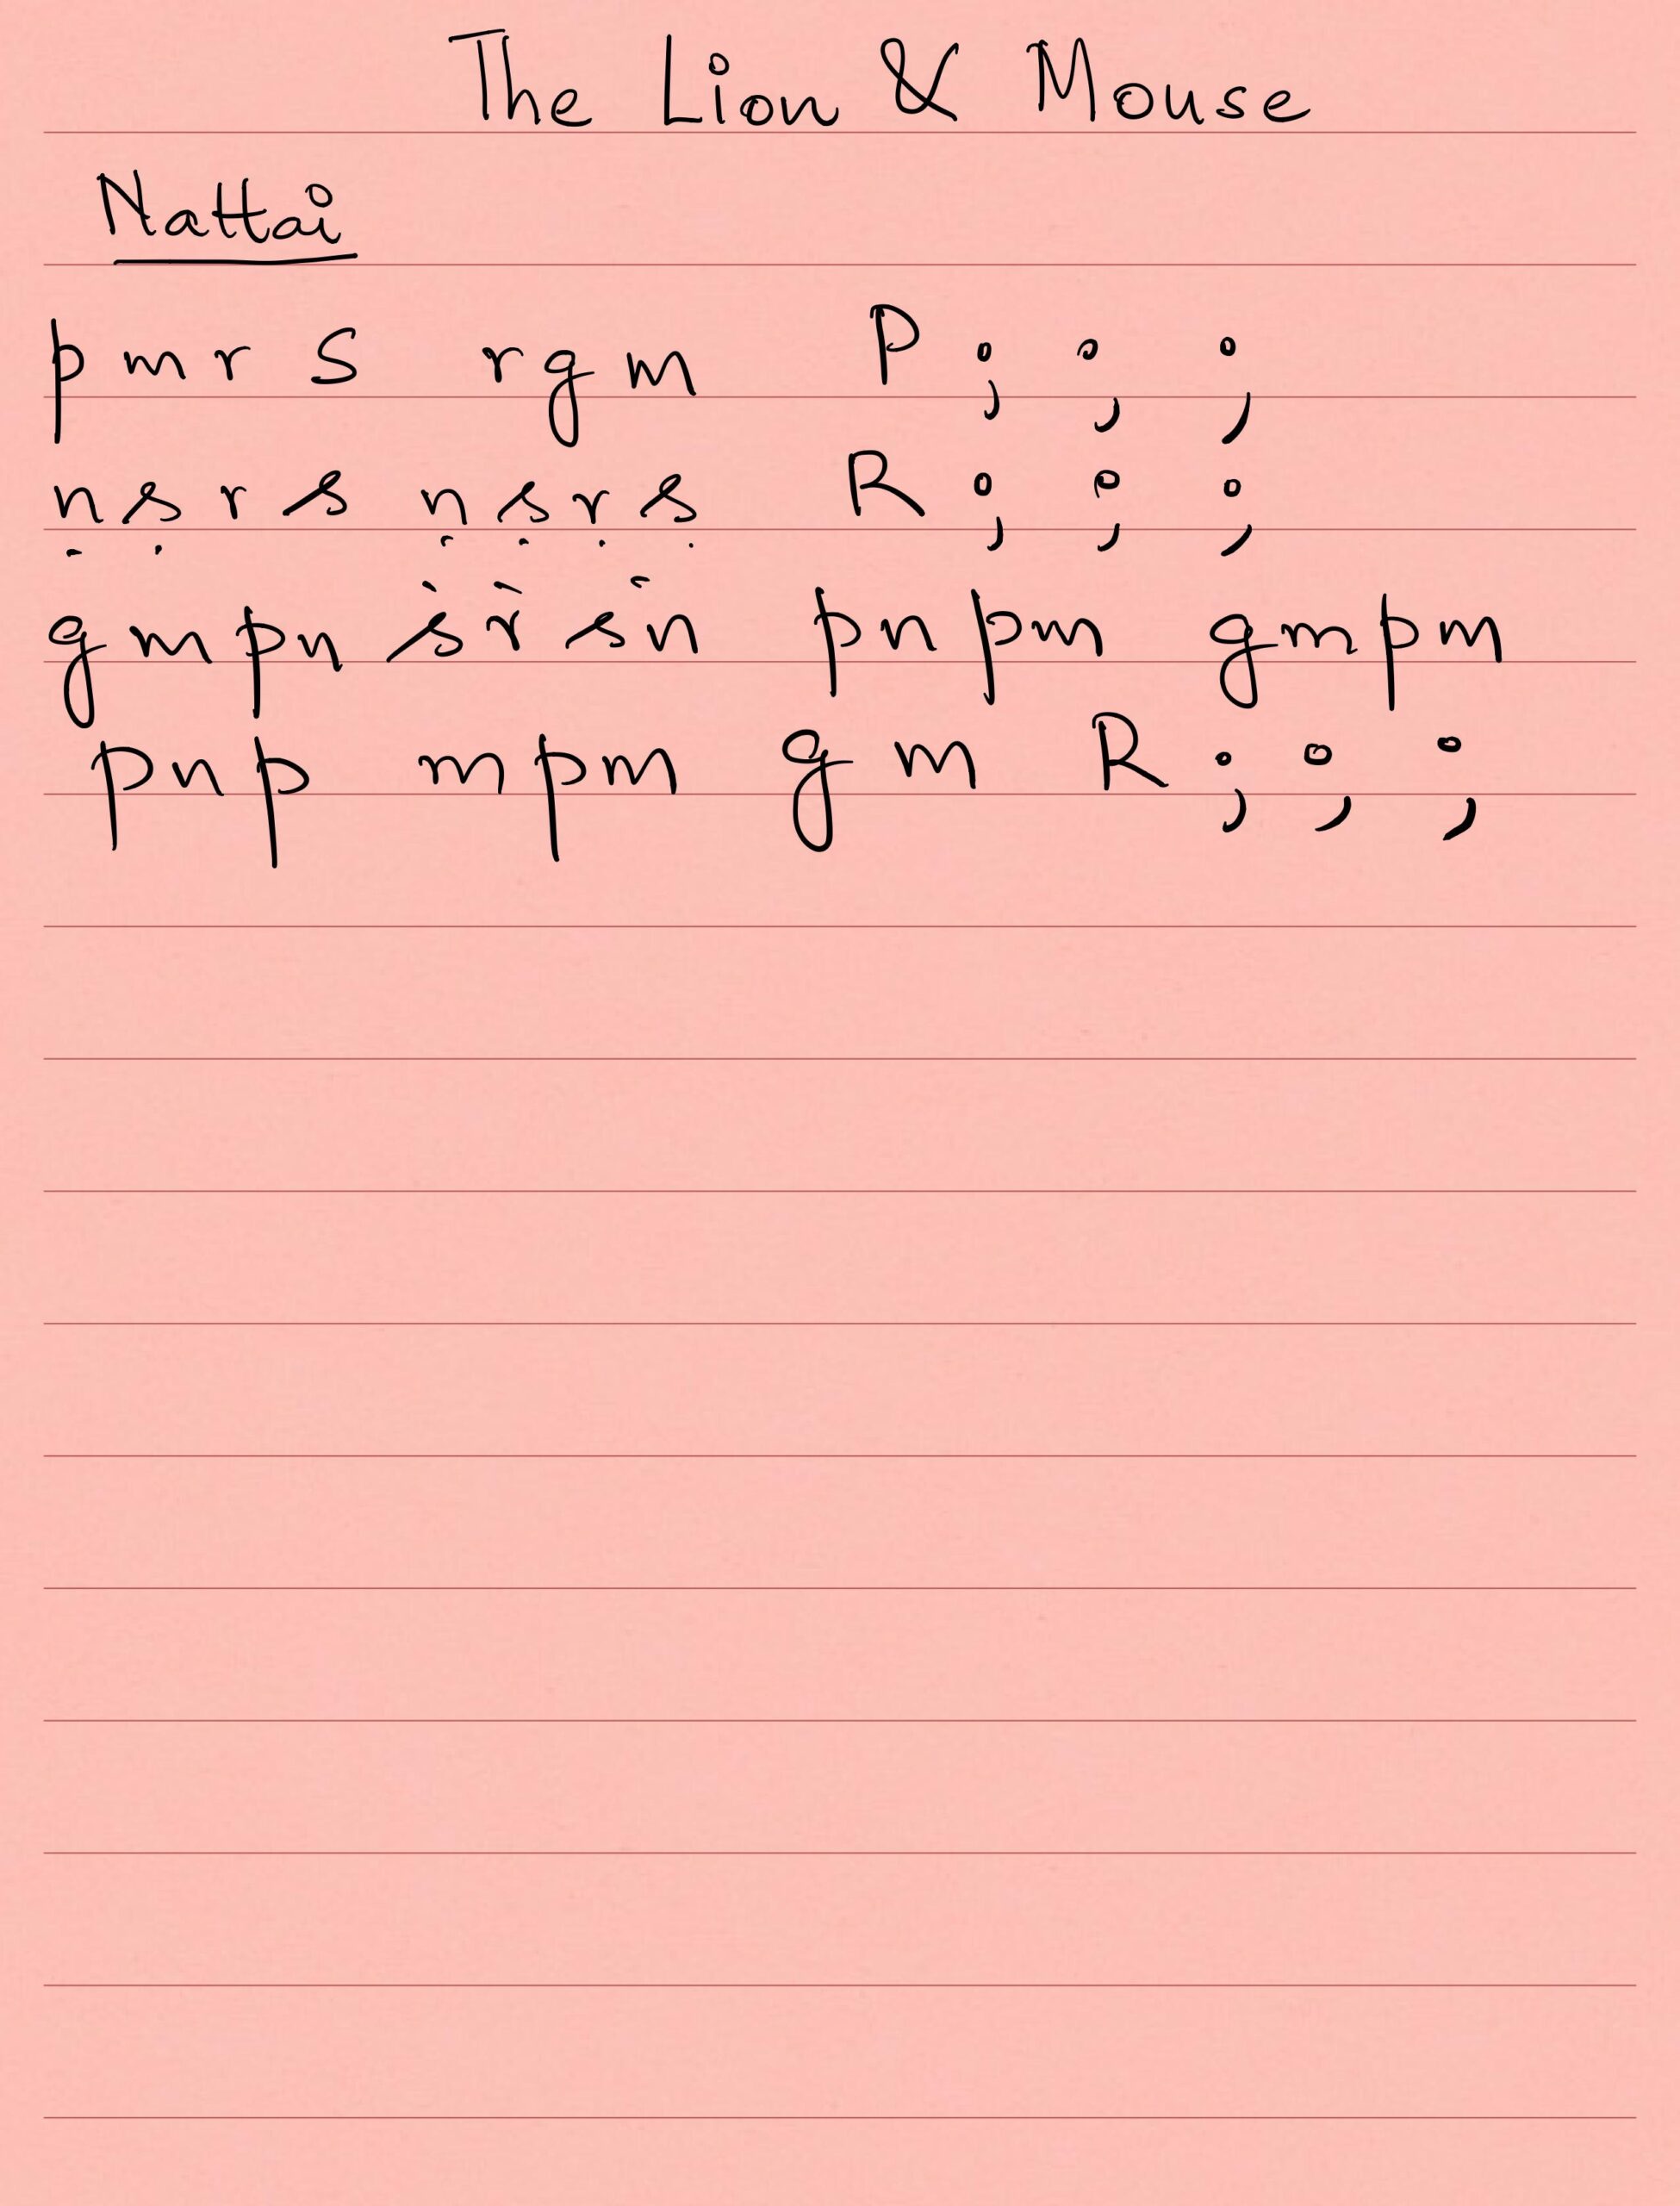 The Lion & Mouse
Nattai
p m r S r g m P ; ; ;
ṇ ṣ r s ṇ ṣ ṛ ṣ R ; ; ;
g m p n ṡ ṙ ṡ n p n p m g m p m
p n p m p m g m R ; ; ;